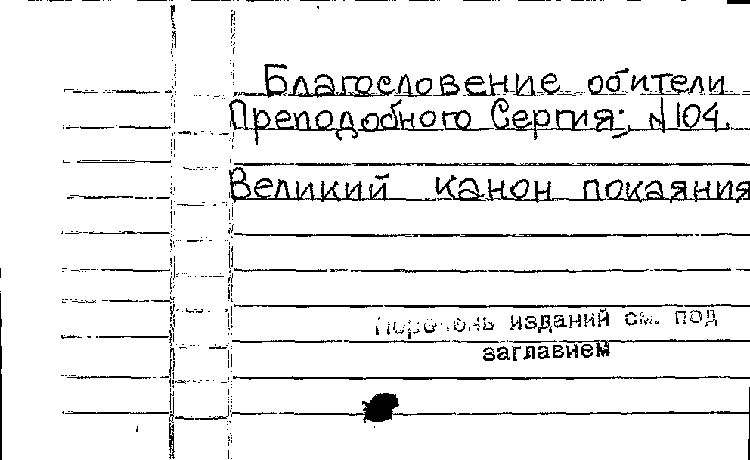 Благословение обители
Преподобного Сергия; N 104.
Великий канон покаяния
Перечень изданий см. под
заглавием